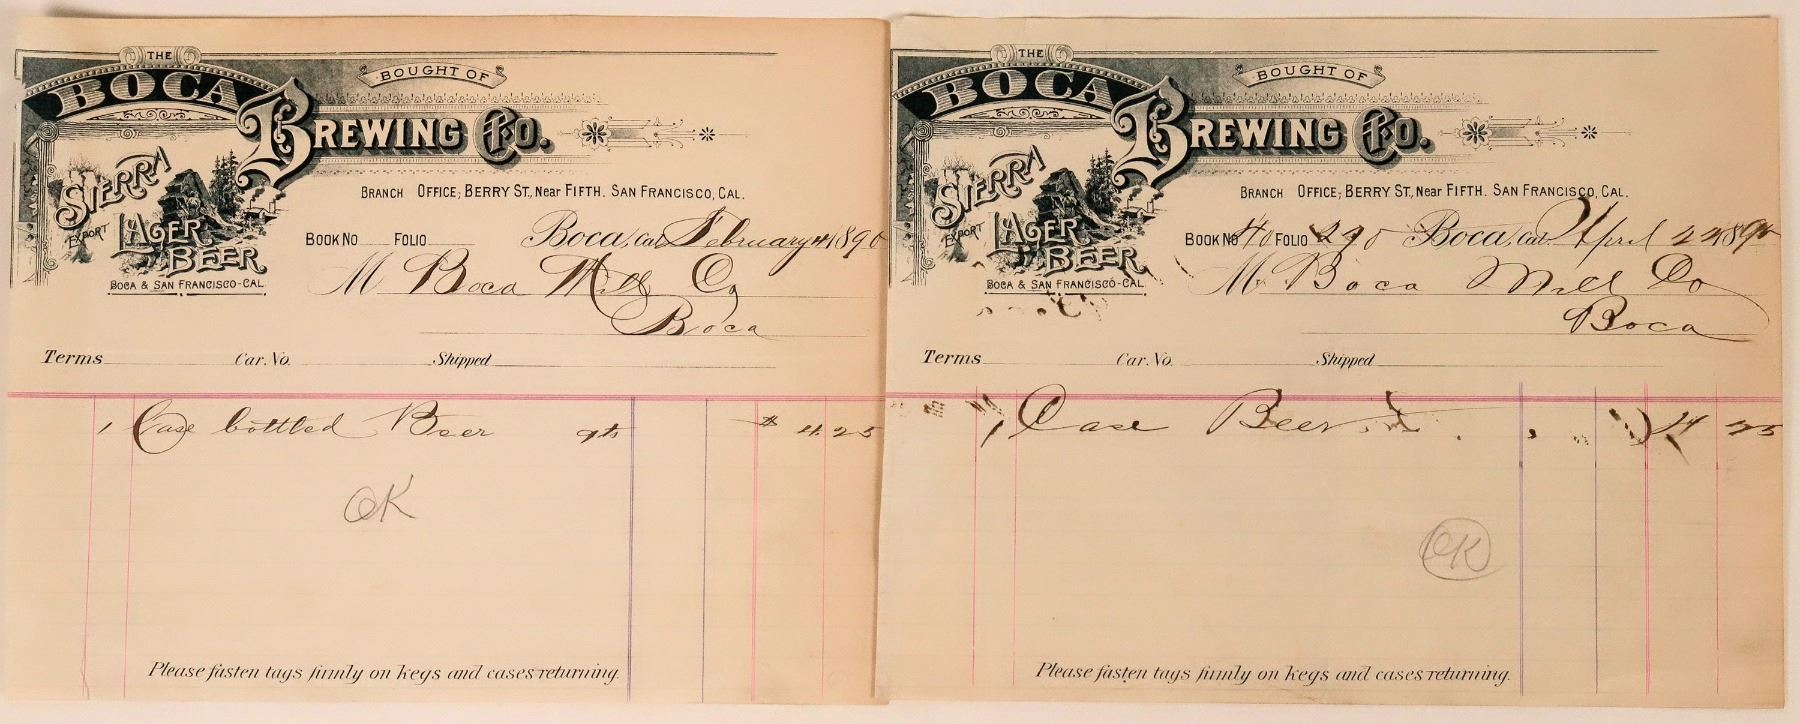 THE
BOCA
BOUGHT OF
BREWING CO.
SIERRA
EXPORT
LAGER
BEER
BOCA & SAN FRANCISCO-CAL
BRANCH OFFICE; BERRY ST., NEAR FIFTH. SAN FRANCISCO, CAL.
BOOK NO FOLIO Boca, Cal. February 4 1890
M Boca Mill Co
Boca
Terms Car. No. Shipped
1 Case bottled Beer qts $ 4 25
OK
Please fasten tags firmly on kegs and cases returning.
THE
BOCA
BOUGHT OF
BREWING CO.
SIERRA
EXPORT
LAGER
BEER
BOCA & SAN FRANCISCO-CAL.
BRANCH OFFICE; BERRY ST., NEAR FIFTH. SAN FRANCISCO, CAL.
BOOK NO 40 FOLIO 290 Boca, Cal. April 24 1890
M Boca Mill Co
Boca
Terms Car. No. Shipped
1 Case Beer 4 25
OK
Please fasten tags firmly on kegs and cases returning.